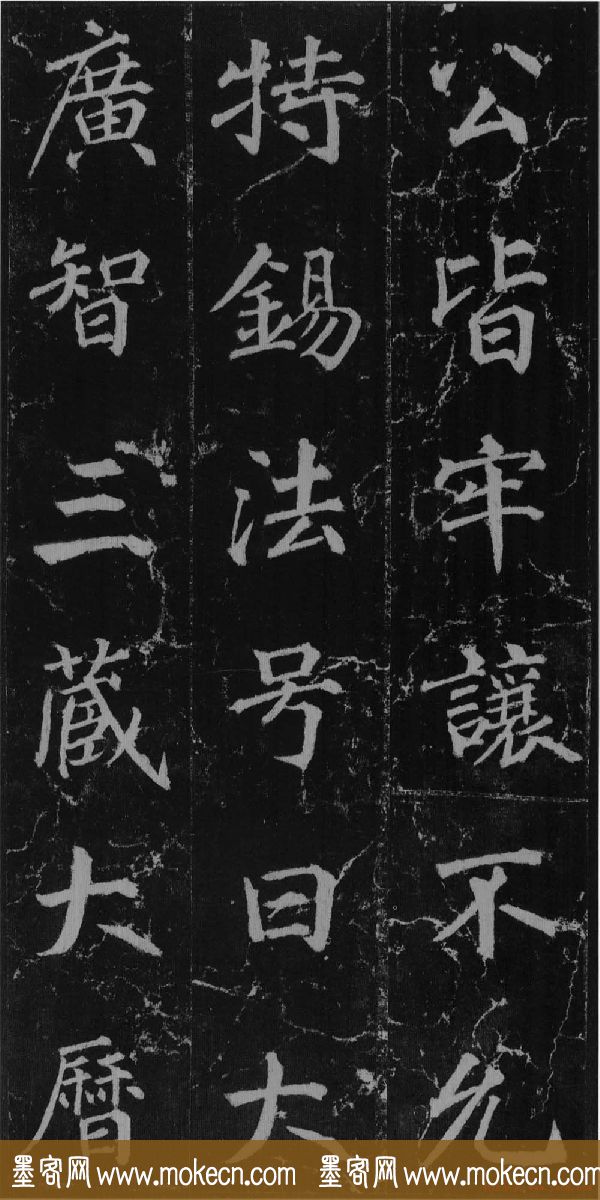 公皆牢讓不允
特錫法号曰大
廣智三藏大曆
墨客网 www.mokecn.com 墨客网 www.mokecn.com